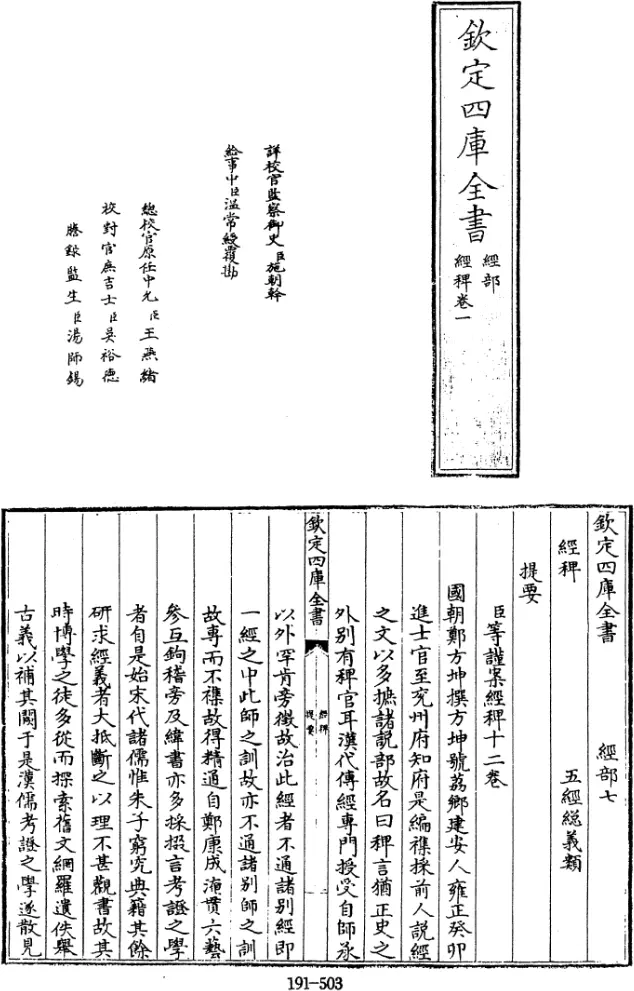 欽定四庫全書
經部
經稗卷一
詳校官監察御史臣施朝幹
給事中臣溫常綬覆勘
總校官原任中允臣王燕緒
校對官庶吉士臣吳裕德
謄錄監生臣湯師錫
欽定四庫全書 經部七
經稗 五經總義類
提要
臣等謹案經稗十二卷
國朝鄭方坤撰方坤號荔鄉建安人雍正癸卯
進士官至兖州府知府是編襍採前人說經
之文以多摭諸說部故名曰稗言猶正史之
外別有稗官耳漢代傳經專門授受自師承
欽定四庫全書 經稗 提要
以外罕肯旁徵故治此經者不通諸別經即
一經之中此師之訓故亦不通諸別師之訓
故專而不襍故得精通自鄭康成淹貫六藝
參互鉤稽旁及緯書亦多採掇言考證之學
者自是始宋代諸儒惟朱子窮究典籍其餘
研求經義者大抵斷之以理不甚觀書故其
時博學之徒多從而探索舊文網羅遺佚舉
古義以補其闕于是漢儒考證之學遂散見
191-503